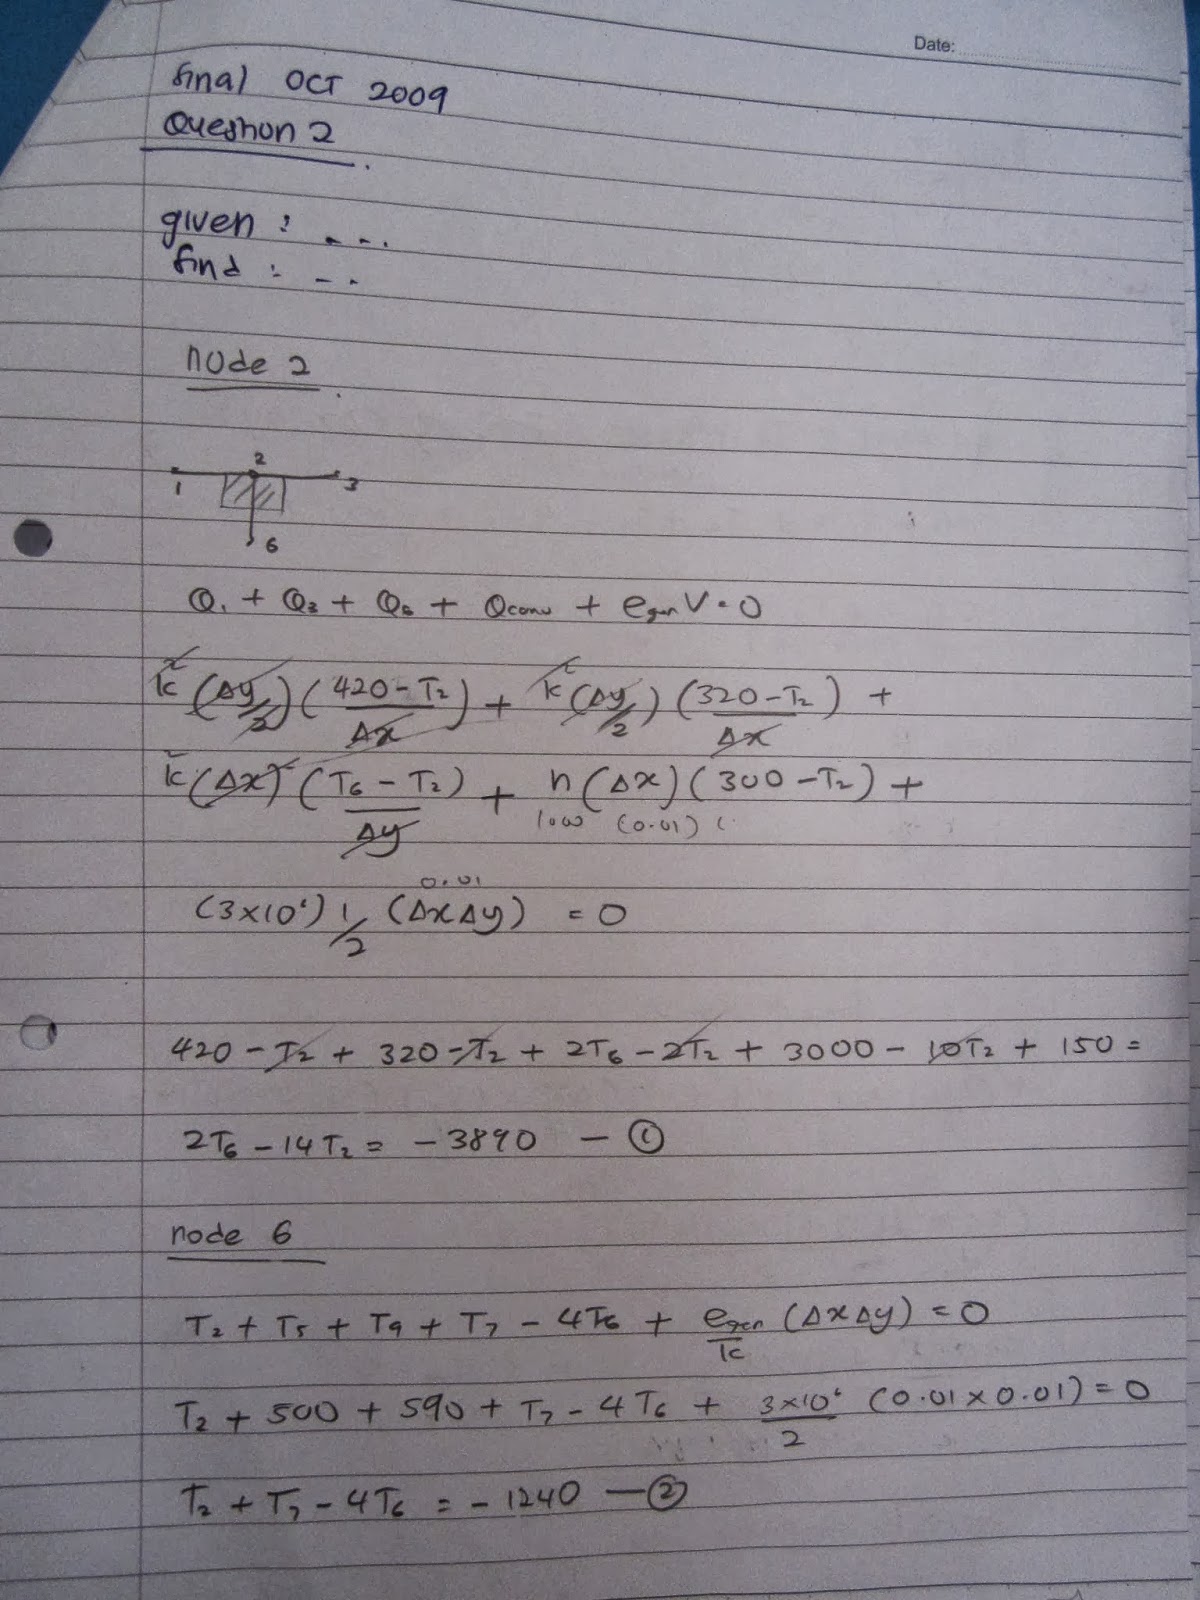 Date:
final OCT 2009
Question 2
given : - - .
find : - -
node 2
2
1 3
6
Q₁ + Q₃ + Q₆ + Qconv + egen V = 0
k (Δy/2) (420 - T₂ / Δx) + k (Δy/2) (320 - T₂ / Δx) +
k (Δx) (T₆ - T₂ / Δy) + h (Δx) (300 - T₂) +
(0.01) (
0.01
(3×10⁶) 1/2 (ΔxΔy) = 0
420 - T₂ + 320 - T₂ + 2T₆ - 2T₂ + 3000 - 10T₂ + 150 =
2T₆ - 14T₂ = - 3890 - ①
node 6
T₂ + T₅ + T₉ + T₇ - 4T₆ + egen/k (ΔxΔy) = 0
T₂ + 500 + 590 + T₇ - 4T₆ + 3×10⁶/2 (0.01×0.01) = 0
T₂ + T₇ - 4T₆ = - 1240 - ②